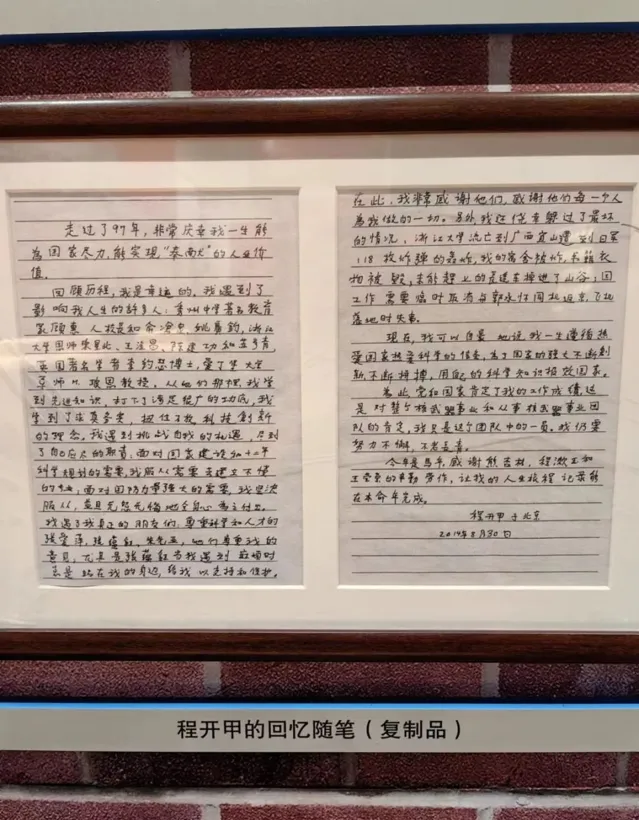 走过了97年，非常庆幸我一生能
为国家尽力，能实现“泰雨大”的人生价
值。
回顾历程，我是幸运的。我遇到了
影响我人生的许多人：秀州中学著名教育
家顾惠人校长和俞沧泉、姚广钧，浙江
大学因师束星北、王淦昌、陈建功和苏步青，
英国著名学者李约瑟博士，爱丁堡大学
导师M.玻恩教授。从他们那里，我学
到先进知识，打下了满足挖广的功底，我
学到了求真务实，
的理念。我遇到挑战自我的机遇，尽到
了自己应尽的职责；面对国家建设和十二年
科学规划的需要，我服从需要去建立不懂
的专业；面对国防力量强大的需要，我坚决
服从，并且无怨无悔地全身心
我遇了我真正的朋友们，尊重科学和人才的
张爱萍、张蕴钰、朱光亚，他们尊重我的
意见，尤其是张蕴钰当我遇到
总是站在我的身边，给我以支持和保护。
在此，我非常感谢他们，感谢他们每一个人
为我做的一切。另外，我还侥幸躲过了最坏
的情况，浙江大学流亡到广西宜山遭到日军
118枚炸弹的轰炸，我的宿舍被炸，书籍衣
物被毁，未能赶上的是连车掉进了山谷；因
工作需要临时取消与郭永怀同机返京，飞机
落地时失事。
现在，我可以自豪地说，我一生遵循热
爱国家热爱科学的信条，为了国家的强大不断创
新，不断拼搏，用我的科学知识报效国家。
为此，党和国家肯定了我的工作成绩，这
是对整个核武器事业和从事核武器事业团
队的肯定，我只是这个团队中的一员。我仍要
努力不懈，不老长青。
今年是马年，感谢熊杏林、程漱玉和
王莹莹的辛勤劳作，让我的人生旅程记录能
在本命年完成。
程开甲于北京
2014年8月30日
程开甲的回忆随笔（复制品）